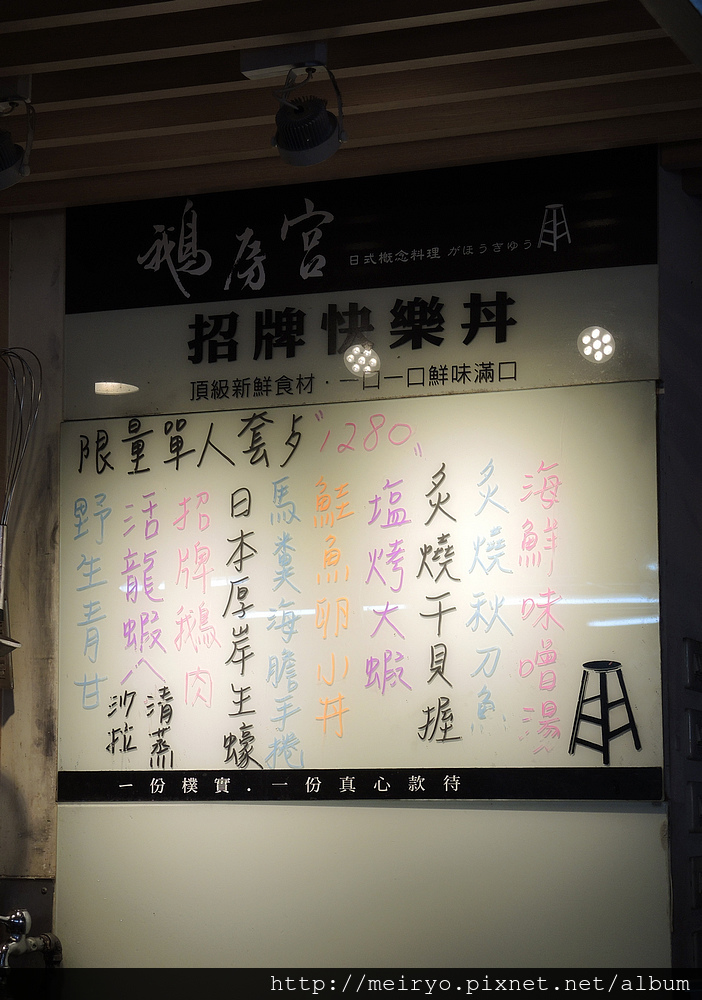 鵝房宮
日式概念料理 がほうぎゆう
招牌快樂丼
頂級新鮮食材．一口一口鮮味滿口
限量單人套歺"1280"
海鮮味噌湯
炙燒秋刀魚
炙燒干貝握
塩烤大蝦
鮭魚卵小丼
馬糞海膽手捲
日本厚岸生蠔
招牌鵝肉
活龍蝦
清蒸
沙拉
野生青甘
一份樸實．一份真心款待
http://meiryo.pixnet.net/album